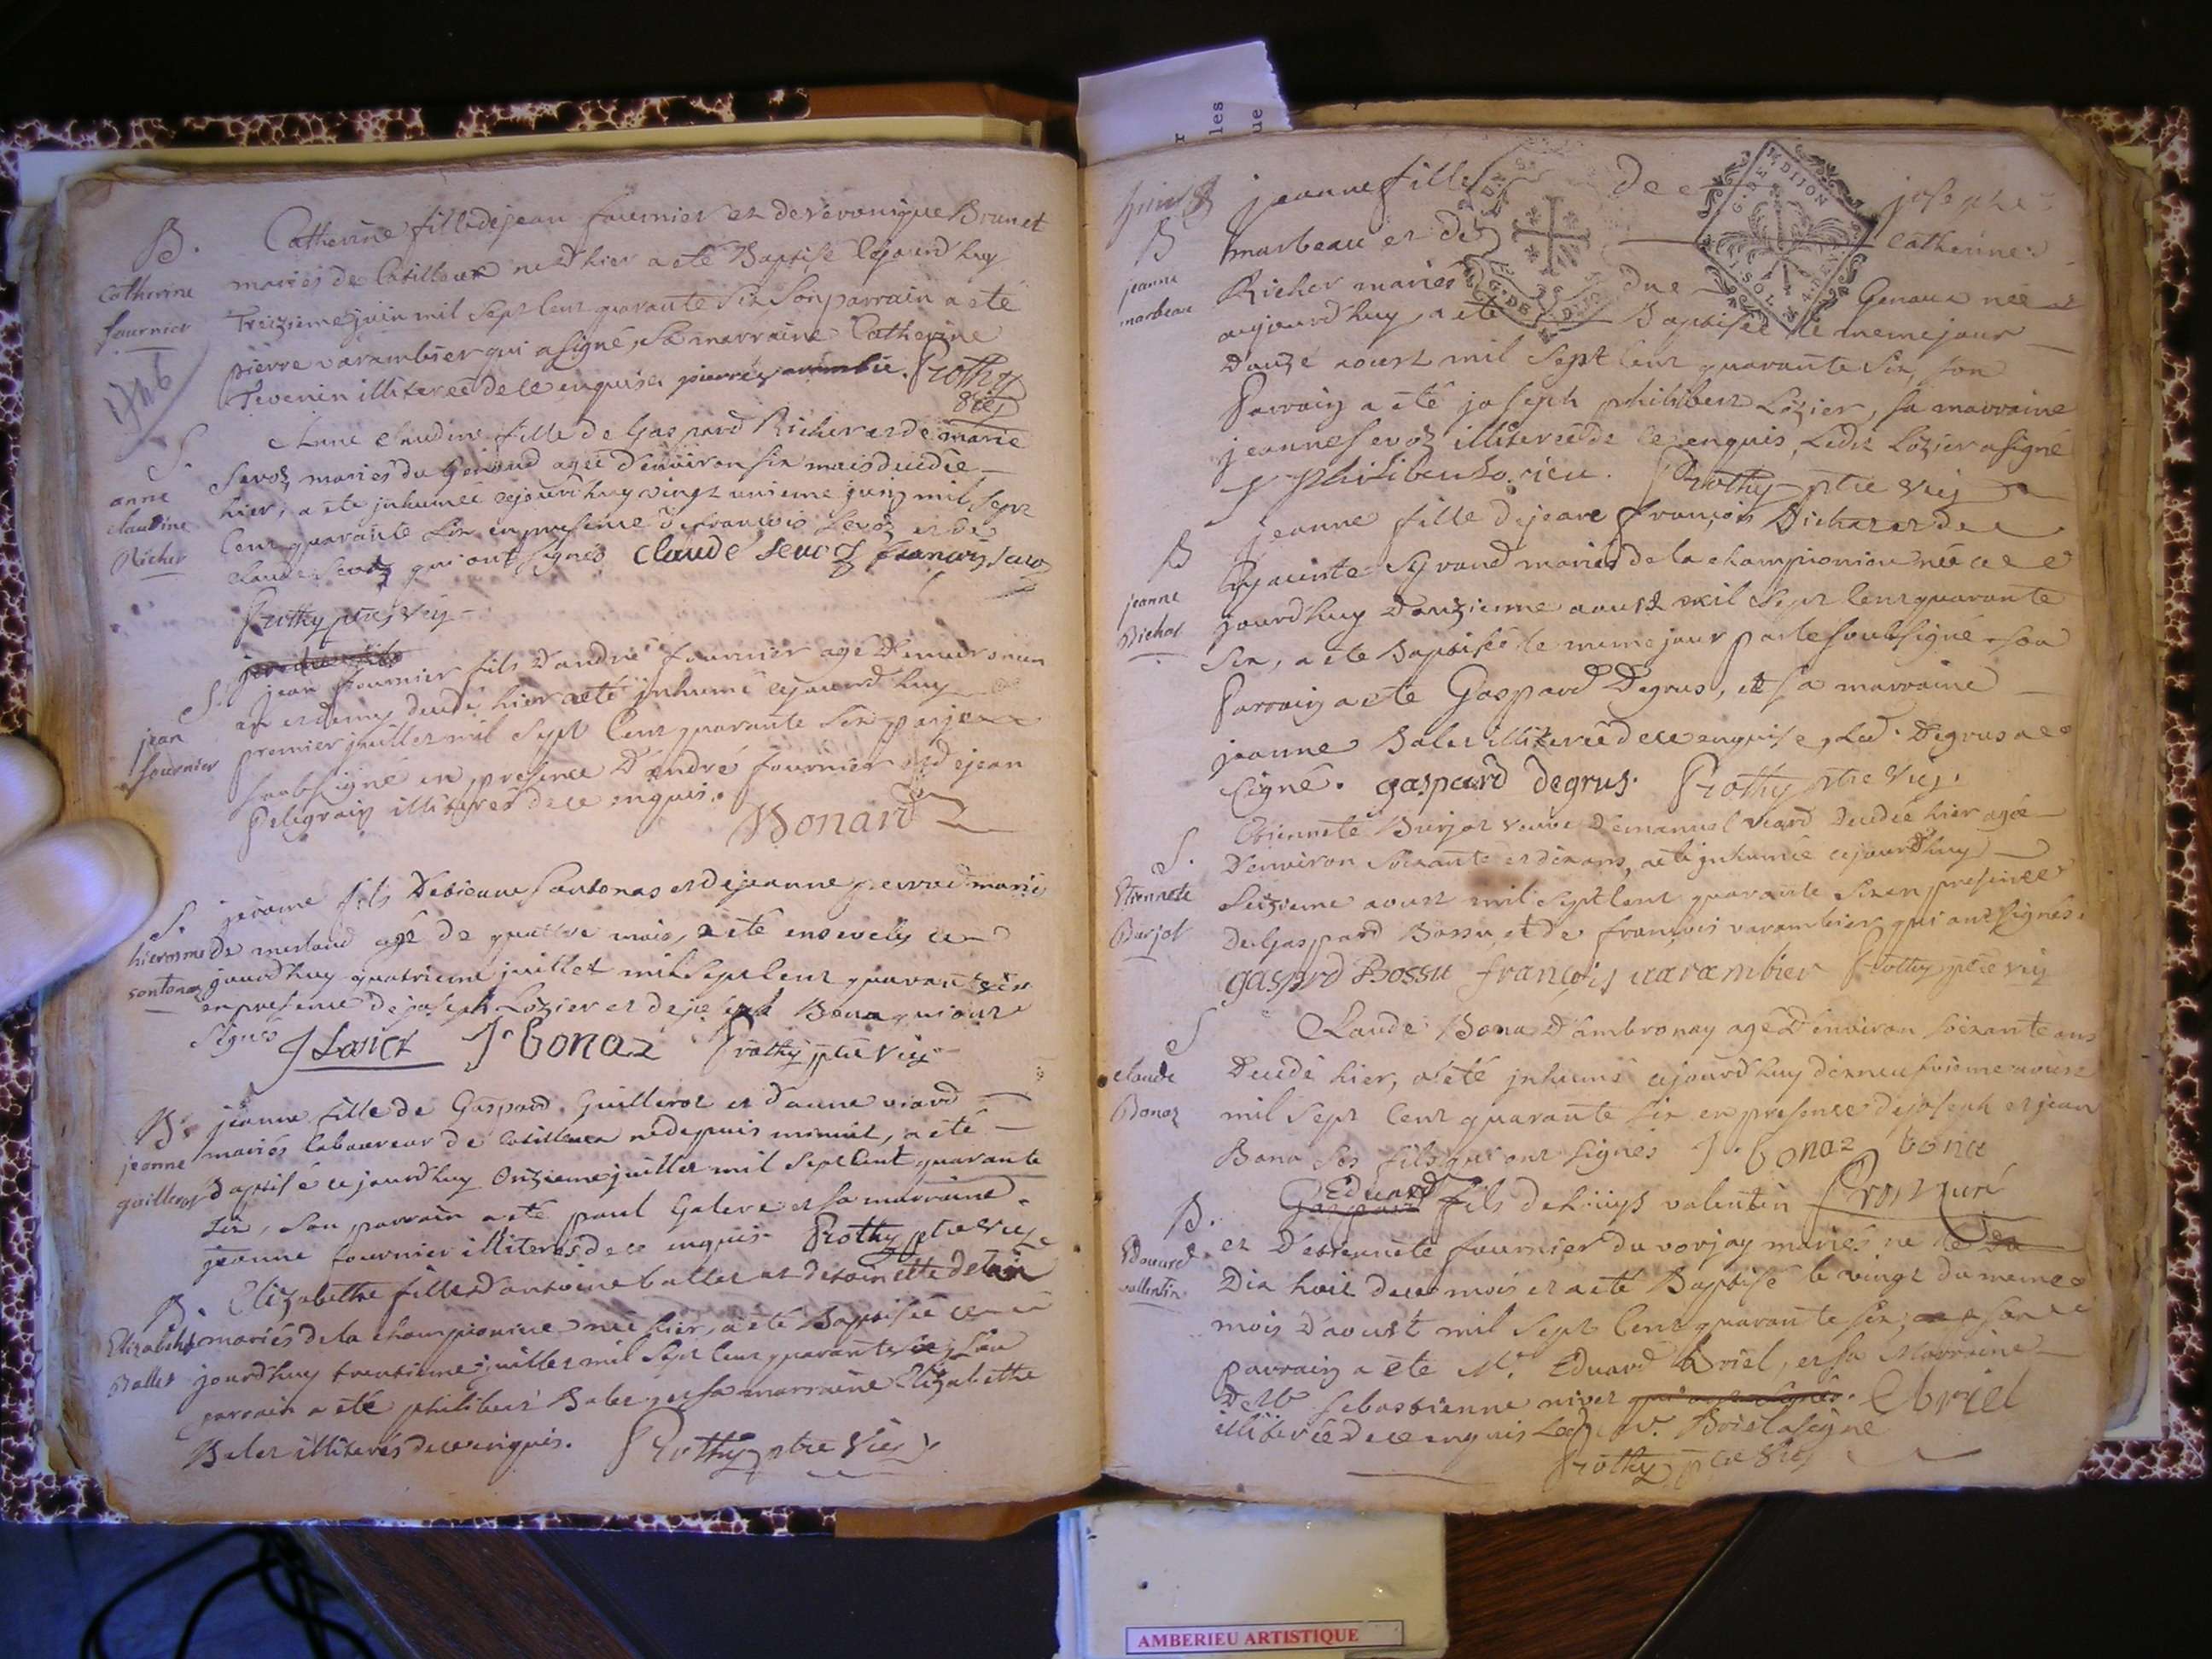 B.
Catherine fille de jean fournier et de veronique Brunet
mariés de né d'hier a eté Baptisé cejourd'huy
Catherine
fournier
treizieme juin mil sept cent quarante six son parrain a eté
pierre varambier qui a signé, sa marraine Catherine
1746
Tevenin illiterée de ce enquise pierre varambie. Prothy
S.
anne
claudine
Richer
Anne Claudine fille de Gaspard Richer et de marie
Sevoz mariés du agée d'environ six mois decedée
hier, a eté inhumée cejourd'huy vingt unieme juin mil sept
cent quarante six en presence de francois Sevoz et de
claude Sevoz qui ont signés claude sevoz francois sevoz
Prothy ptre vic
S.
jean
fournier
jean fournier fils d'andré fournier agé d'environ un
an et demy decedé hier a eté inhumé cejourd'huy
premier juillet mil sept cent quarante six par je
soubsigné en presence d'andré fournier et de jean
Pelegrin illiterés de ce enquis.
Bonard
S.
hierosme
sontonas
jerome fils d'etienne sontonas et de jeanne perrad mariés
de merland agé de quattre mois, a eté ensevely ce
jourd'huy quatrieme juillet mil sept cent quarante six
en presence de joseph Lozier et de joseph Bona qui ont
signés J Losier J bonaz Prothy ptre vic
B.
jeanne
guillerot
jeanne fille de Gaspard Guillerot et d'anne viard
mariés laboureur de né depuis minuit, a eté
Baptisé cejourd'huy onzieme juillet mil sept cent quarante
six, son parrain a eté paul Galere et sa marraine
jeanne fournier illiterés de ce enquis Prothy ptre vic
B.
Elizabeth
Ballet
Elizabethe fille d'antoine ballet et de toinette
mariés de la championiere née hier, a eté Baptisée ce
jourd'huy trentieme juillet mil sept cent quarante six, son
parrain a eté philibert Balet et sa marraine Elizabethe
Balet illiterés de ce enquis. Prothy ptre vic
les
ue
B
jeanne
marbeau
jeanne fille de joseph
marbeau et de catherine
Richer mariés due Genoux née
aujourd'huy, a eté Baptisée le meme jour
douze aoust mil sept cent quarante six, son
Parrain a eté joseph philibert Lozier, sa marraine
jeanne Sevoz illiterée de ce enquis, Ledit Lozier a signé
J philibert Prothy ptre vic
G. DE DIJON
SOLS 4 DEN
B
jeanne
Richar
jeanne fille de jean françois Richar et de
hyacinte mariés de la championiere née ce
jourd'huy douzieme aoust mil sept cent quarante
six, a eté Baptisée le meme jour par le soubsigné son
Parrain a eté Gaspard Degrus, et sa marraine
jeanne Balet illiterée de ce enquise, Led. Degrus a
signé. gaspard degrus. Prothy ptre vic.
S.
Etiennete
Burjot
Etiennete Burjot veuve d'emanuel viard Decedée hier agée
d'environ soixante et dix ans, a eté inhumée cejourd'huy
Seizieme aoust mil sept cent quarante six en presence
de Gaspard Bossu, et de françois varambier qui ont signés.
gaspard Bossu françois uarambier Prothy ptre vic
S
claude
Bonaz
Claude Bona d'ambronay agé d'environ soixante ans
Decedé hier, a eté inhumé cejourd'huy dixneufvieme aoust
mil sept cent quarante six en presence de joseph et jean
Bona ses fils qui ont signés J. bonaz bona
Prost curé
B.
Edouard
vallentin
Eduard
Gaspard fils de valentin
et d'etiennete fournier du vorjay mariés né le
Dix huit de ce mois et a eté Baptisé le vingt du meme
mois d'aoust mil sept cent quarante six, son
parrain a eté Mr. Eduard Briel, et sa Marraine
Delle sebastienne nivet qui ont signés. Ebriel
illiterée de ce enquis Led. Mr. Briel a signé
Prothy ptre vic
AMBERIEU ARTISTIQUE